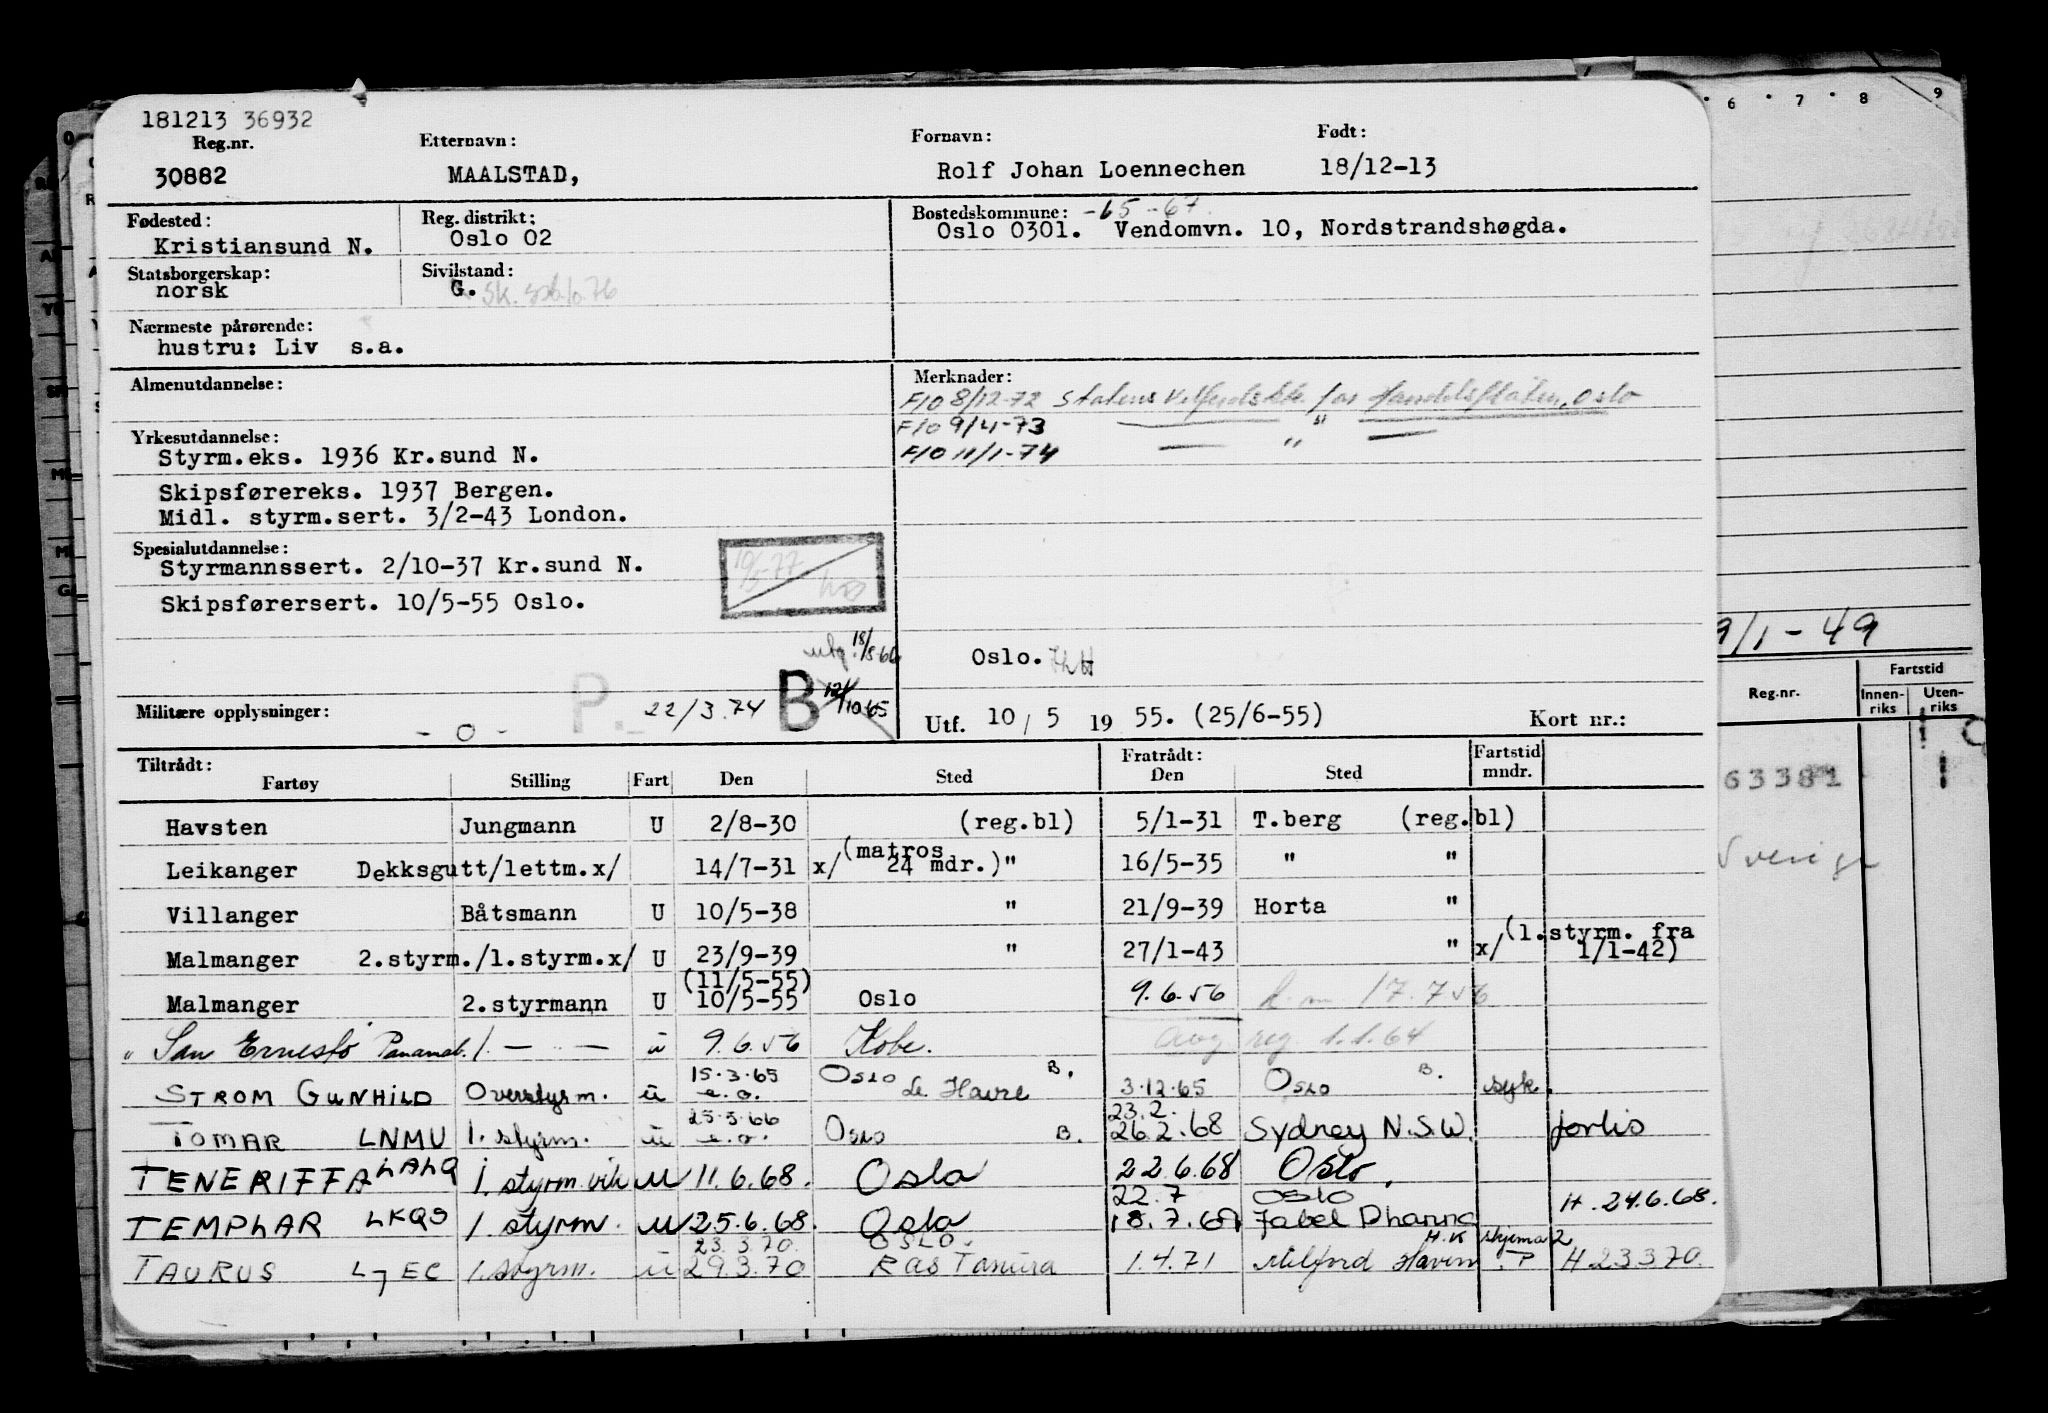 181213 36932
Reg.nr. Etternavn: Fornavn: Født:
30882 MAALSTAD, Rolf Johan Loennechen 18/12-13
Fødested: Reg. distrikt: Bostedskommune: -65-67.
Kristiansund N. Oslo 02 Oslo 0301. Vendomvn. 10, Nordstrandshøgda.
Statsborgerskap: Sivilstand:
norsk G.
Nærmeste pårørende:
hustru: Liv s.a.
Almenutdannelse: Merknader:
F/O 8/12-72 Statens for Handelsflåten, Oslo
F/O 9/4-73 — " —
Yrkesutdannelse:
Styrm.eks. 1936 Kr.sund N. F/O 11/1-74 — " —
Skipsførereks. 1937 Bergen.
Midl. styrm.sert. 3/2-43 London.
Spesialutdannelse:
Styrmannssert. 2/10-37 Kr.sund N.
Skipsførersert. 10/5-55 Oslo.
Oslo.
Militære opplysninger: - 0 - P. 22/3.74 B 12/10 65 Utf. 10/ 5 19 55. (25/6-55) Kort nr.:
Tiltrådt: Fratrådt: Fartstid
Fartøy Stilling Fart Den Sted Den Sted mndr.
Havsten Jungmann U 2/8-30 (reg.bl) 5/1-31 T.berg (reg.bl)
Leikanger Dekksgutt/lettm.x/ 14/7-31 x/ (matros 24 mdr.) " 16/5-35 " "
Villanger Båtsmann U 10/5-38 " 21/9-39 Horta "
Malmanger 2.styrm./1.styrm.x/ U 23/9-39 " 27/1-43 " x/ (1.styrm. fra 1/1-42)
(11/5-55)
Malmanger 2.styrmann U 10/5-55 Oslo 9.6.56 17.7.56
" San Ernesto Panamab. 1. — — ü 9.6.56 Kobe. Avg reg 1.1.64
15.3.65
STROM GUNHILD Overstyrm. ü e.o. Oslo Le Havre B. 3.12.65 Oslo B. syk.
25.3.66 23.2.
TOMAR LNMU 1. styrm. ü e.o. Oslo B. 26.2.68 Sydney N.S.W. forlis
TENERIFFA LALQ 1. styrm. vik U 11.6.68. Oslo 22.6.68 Oslo.
22.7 OSLO H. 24.6.68.
TEMPLAR LKQS 1. styrm. U 25.6.68. Oslo 18.7.69 Jabel Dhanna
23.3.70. OSLO. H.K skjema 2
TAURUS LJEC 1. styrm. ü 29.3.70 RAS Tanura 1.4.71 Milford Haven P H.23370.
6 7 8 9
9/1-49
Fartstid
Reg.nr. Innenriks Utenriks
63381
Sverige